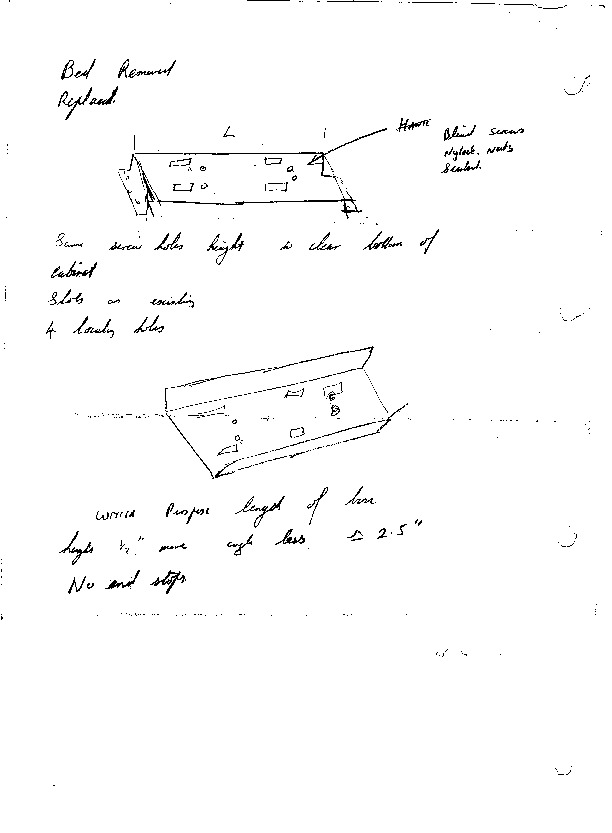 Bed Removed
Replaced.
L
Blind screws
Nylock. Nuts
Sealant.
Same screw holes height to clear bottom of
Cabinet
Slots as existing
4 locating holes
length of base
height ½" more angle less 2.5"
No end stops